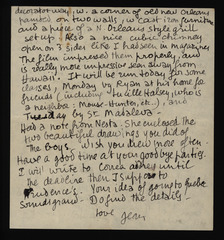 decorator way), w. a corner of old New Orleans
painted on two walls, w. cast iron furniture
and a piece of a N Orleans style grill
set up. Also a nice cubic chimney
open on 3 sides like I has seen in magazines
The film impressed them properly, and
is really more impressive seen away from
Hawaii. It will be run today for some
classes, Monday by Ryan at his home for
friends (including Lucille Halsey, who is
a neighbor: Mouse-Hunter, etc.), and
Tuesday by St.
Had a note from Nesta. She enclosed the
two beautiful drawings you did of
"The boys". Wish you drew more often.
Have a good time at your good bye parties.
I will write to addres until
the deadline then I suppose to
Your idea of going to
Sounds grand. Do find the details!
Love Jean